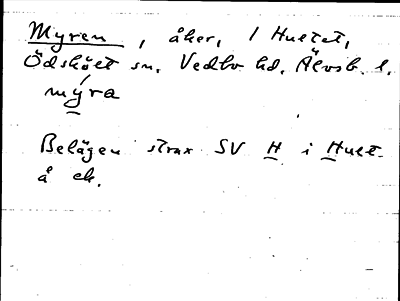 Myren, åker, 1 Hultet,
Ödskölt sn, Vedbo hd, Älvsb. l.
mýra
Belägen strax SV H i Hult-
å ek.